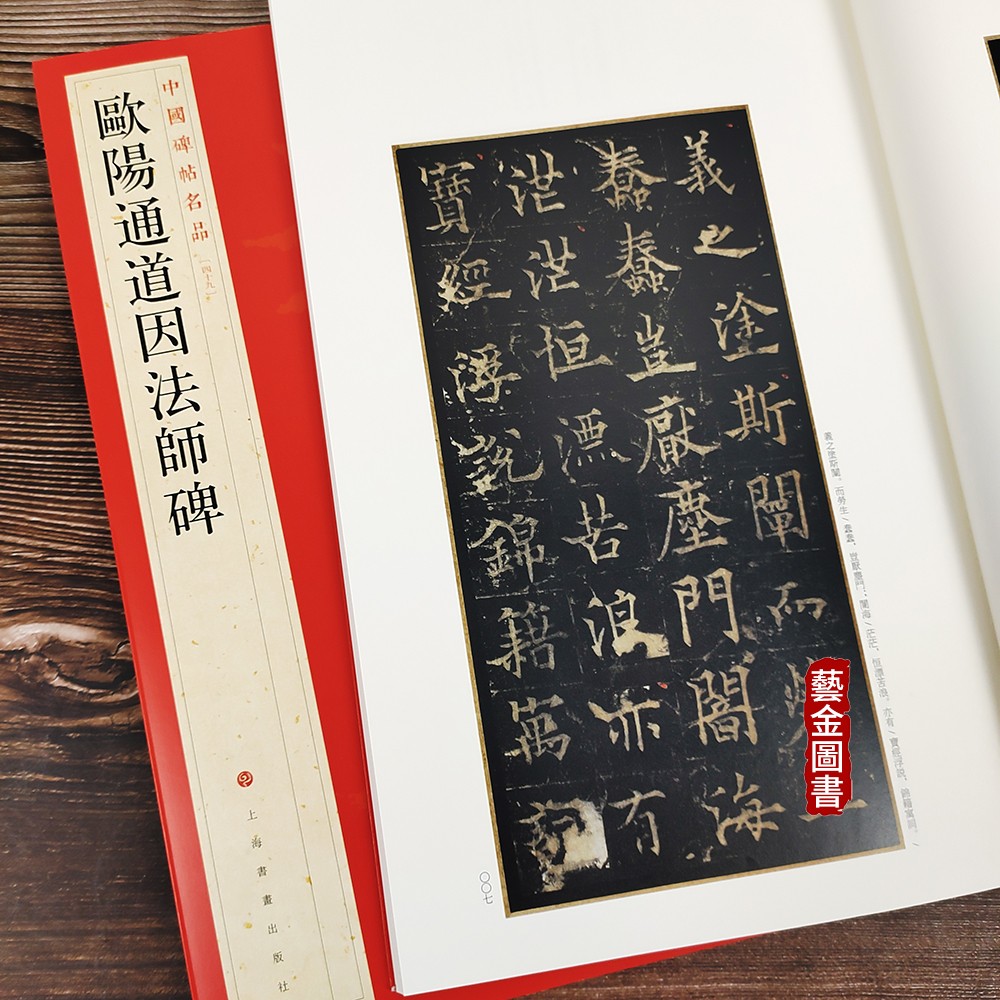 中國碑帖名品
[四十九]
歐陽通道因法師碑
上海書畫出版社
義之塗斯闡而勞生
蠢蠢豈厭塵門闇海
茫茫恒漂苦浪亦有
寶經浮說錦籍寓詞
義之塗斯闡。而勞生/蠢蠢,豈厭塵門,闇海/茫茫,恒漂苦浪。亦有/寶經浮說,錦籍寓詞,/
〇〇七
藝金圖書